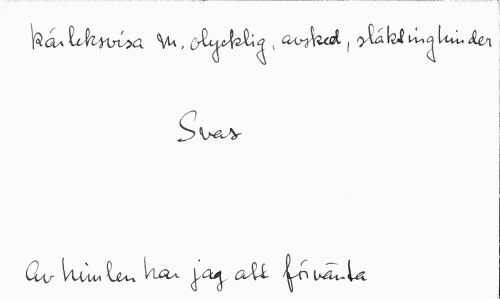 Kärleksvisa m. olycklig, avsked, släktinghinder
Svas
Av himlen har jag att förvänta